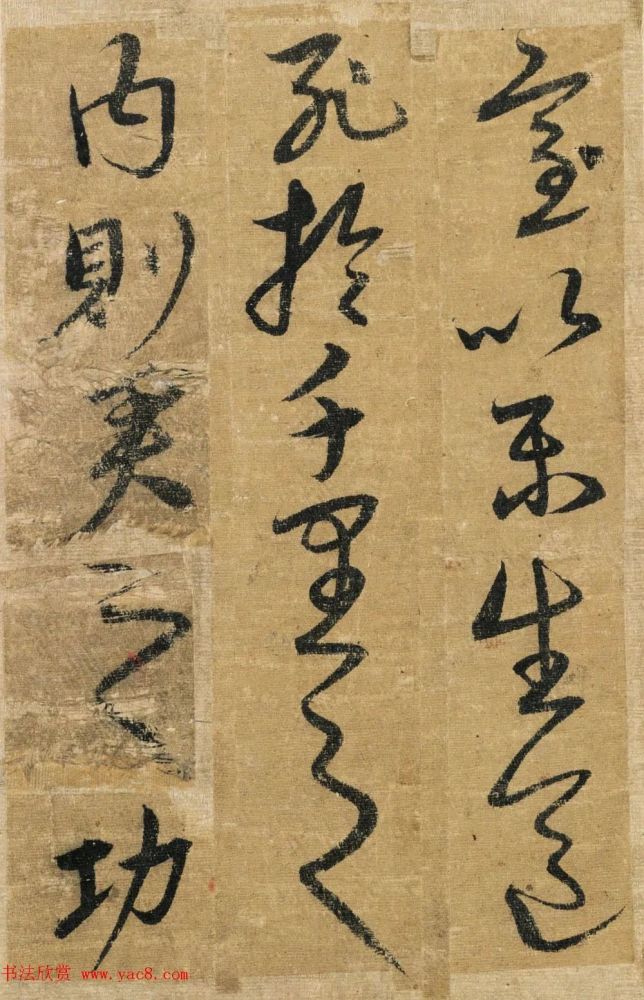 室以樂生道
死於千里之
内則之功
书法欣赏 www.yac8.com